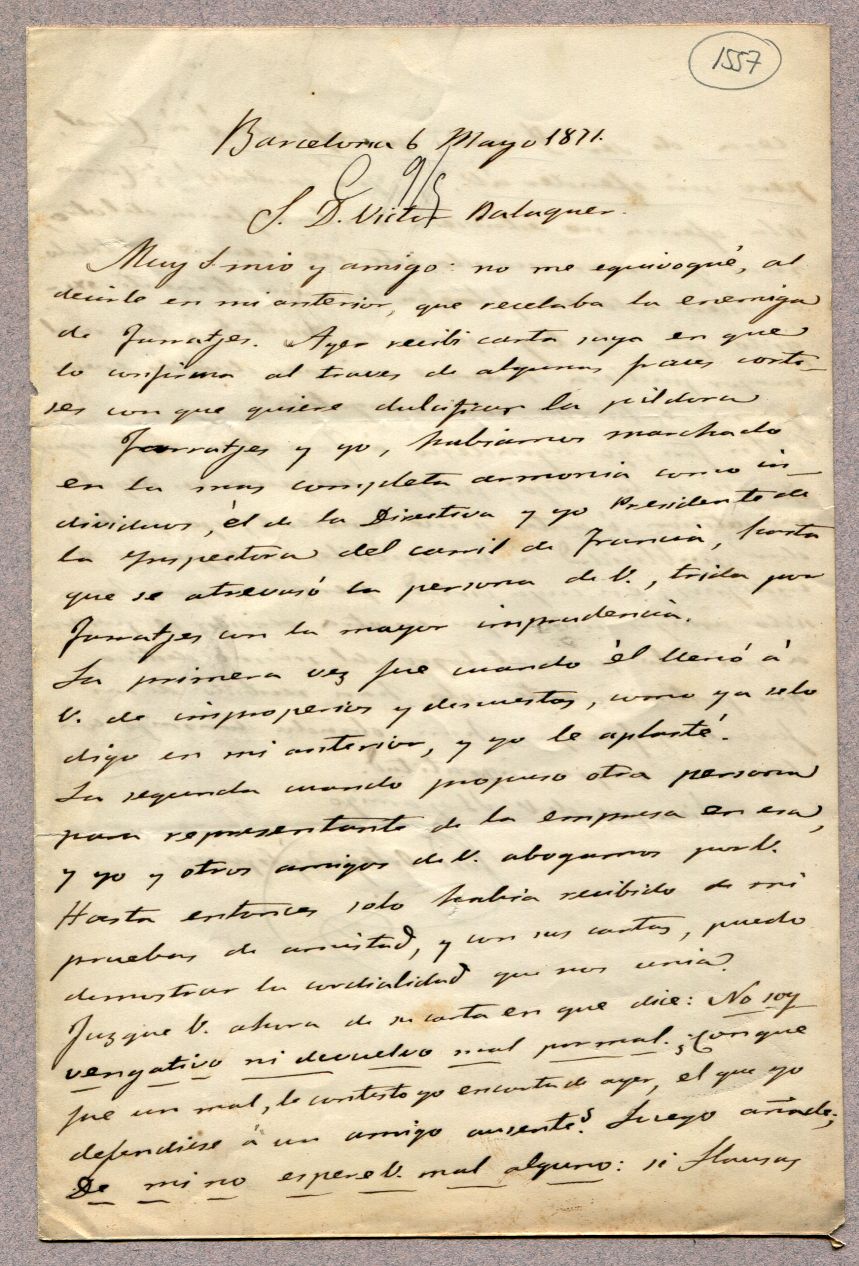 1557
Barcelona 6 Mayo 1871.
C 9/5
S. D. Victor Balaguer.
Muy S. mio y amigo: no me equivoqué, al
decirle en mi anterior, que recelaba la enemiga
de Ferratjes. Ayer recibi carta suya en que
lo confirma al traves de algunas frases corte-
ses con que quiere dulcificar la pildora
Ferratjes y yo, habiamos marchado
en la mas completa armonia como in-
dividuos, él de la Directiva y yo Presidente de
la Ynspectora del carril de Francia, hasta
que se atravesó la persona de V., traida por
Ferratjes con la mayor imprudencia.
La primera vez fue cuando él llenó á
V. de improperios y denuestos, como ya se lo
digo en mi anterior, y yo le aplasté.
La segunda cuando propuso otra persona
para representante de la empresa en esa,
y yo y otros amigos de V. abogamos por V.
Hasta entonces solo habia recibido de mi
pruebas de amistad, y con sus cartas, puedo
demostrar la cordialidad que nos unia.
Juzgue V. ahora de su carta en que dice: No soy
vengativo ni devuelvo mal por mal. ¿Con que
fue un mal, le contesto yo en carta de ayer, el que yo
defendiese á un amigo ausente? Luego añade;
De mi no espere V. mal alguno: si